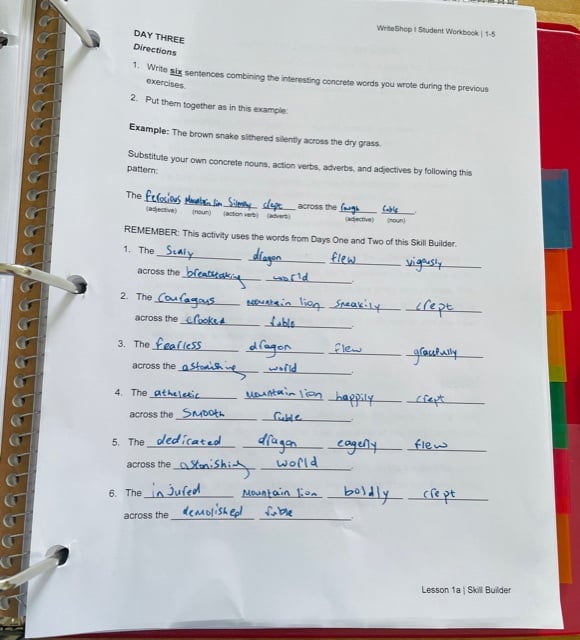 WriteShop I Student Workbook | 1-5
DAY THREE
Directions
1. Write six sentences combining the interesting concrete words you wrote during the previous
exercises.
2. Put them together as in this example:
Example: The brown snake slithered silently across the dry grass.
Substitute your own concrete nouns, action verbs, adverbs, and adjectives by following this
pattern:
The ferosious Mountain lion across the
(adjective) (noun) (action verb) (adverb) (adjective) (noun)
REMEMBER: This activity uses the words from Days One and Two of this Skill Builder.
1. The Scaly dragon flew
across the breathtaking world.
2. The Couragous mountain lion sneakily crept
across the crooked.
3. The fearless dragon flew gracefully
across the astonishing world.
4. The atheletic mountain lion happily crept
across the smooth.
5. The dedicated dragon eagerly flew
across the astonishing world.
6. The injured Mountain lion boldly crept
across the demolished.
Lesson 1a | Skill Builder